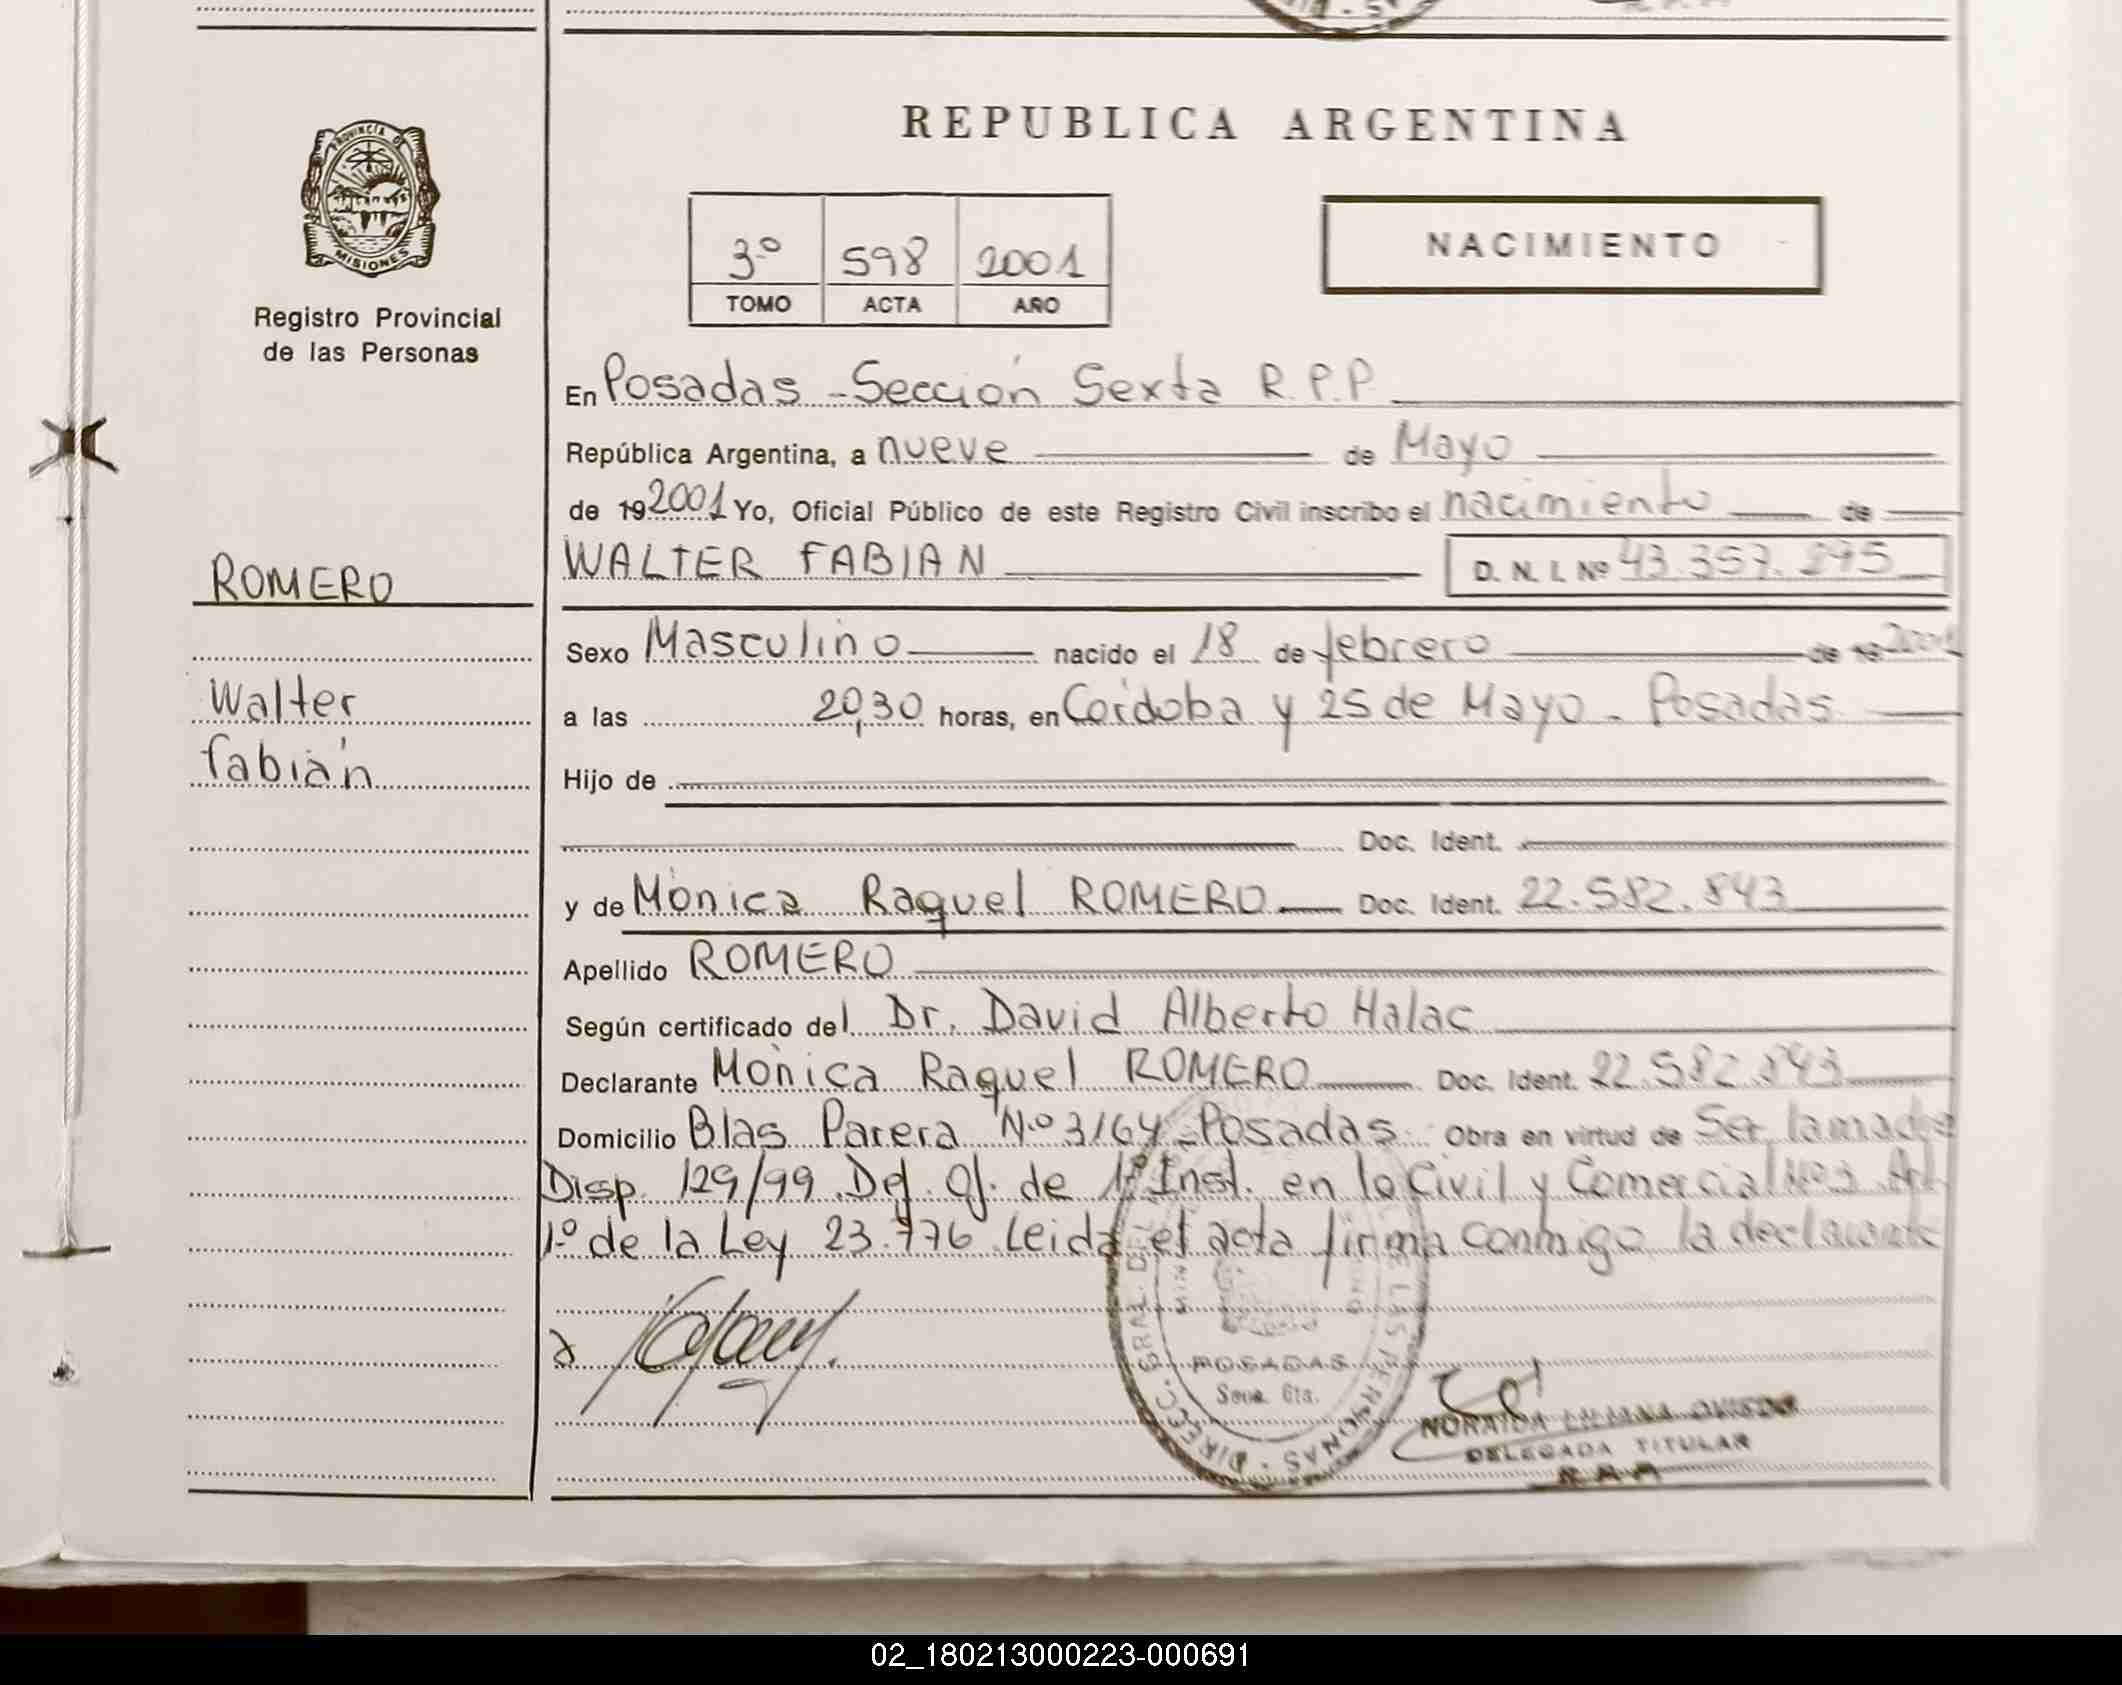 REPUBLICA ARGENTINA
PROVINCIA DE
MISIONES
Registro Provincial
de las Personas
3º 598 2001
TOMO ACTA AÑO
NACIMIENTO
En Posadas - Sección Sexta R.P.P
República Argentina, a nueve de Mayo
de 19 2001 Yo, Oficial Público de este Registro Civil inscribo el nacimiento de
ROMERO
WALTER FABIAN D. N. I. Nº 43.357.295
Sexo Masculino nacido el 18 de febrero de 19 2001
Walter
a las 20,30 horas, en Córdoba y 25 de Mayo - Posadas
fabián
Hijo de
Doc. Ident.
y de Mónica Raquel ROMERO Doc. Ident. 22.582.843
Apellido ROMERO
Según certificado del Dr. David Alberto Halac
Declarante Mónica Raquel ROMERO Doc. Ident. 22.582.843
Domicilio Blas Parera Nº 3164 - Posadas Obra en virtud de Ser la madre
Disp. 129/99 Def. Of. de 1º Inst. en lo Civil y Comercial Nº 3 Art.
1º de la Ley 23.776 Leida el acta firma conmigo la declarante
DIREC. GRAL. DE LAS PERSONAS
POSADAS
Secc. 6ta.
NORAIDA LILIANA OVIEDO
DELEGADA TITULAR
02_180213000223-000691